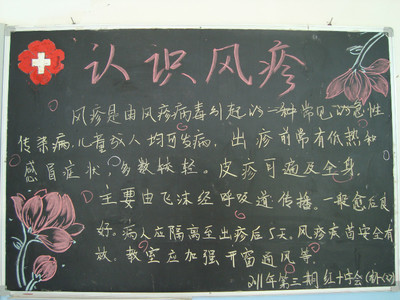 认识风疹
风疹是由风疹病毒引起的一种常见的急性
传染病,儿童成人均可发病。出疹前常有低热和
感冒症状,多数较轻。皮疹可遍及全身。
主要由飞沫经呼吸道传播。一般愈后良
好。病人应隔离至出疹后5天。风疹疫苗安全有
效。教室应加强开窗通风等。
2011年第三期 红十字会